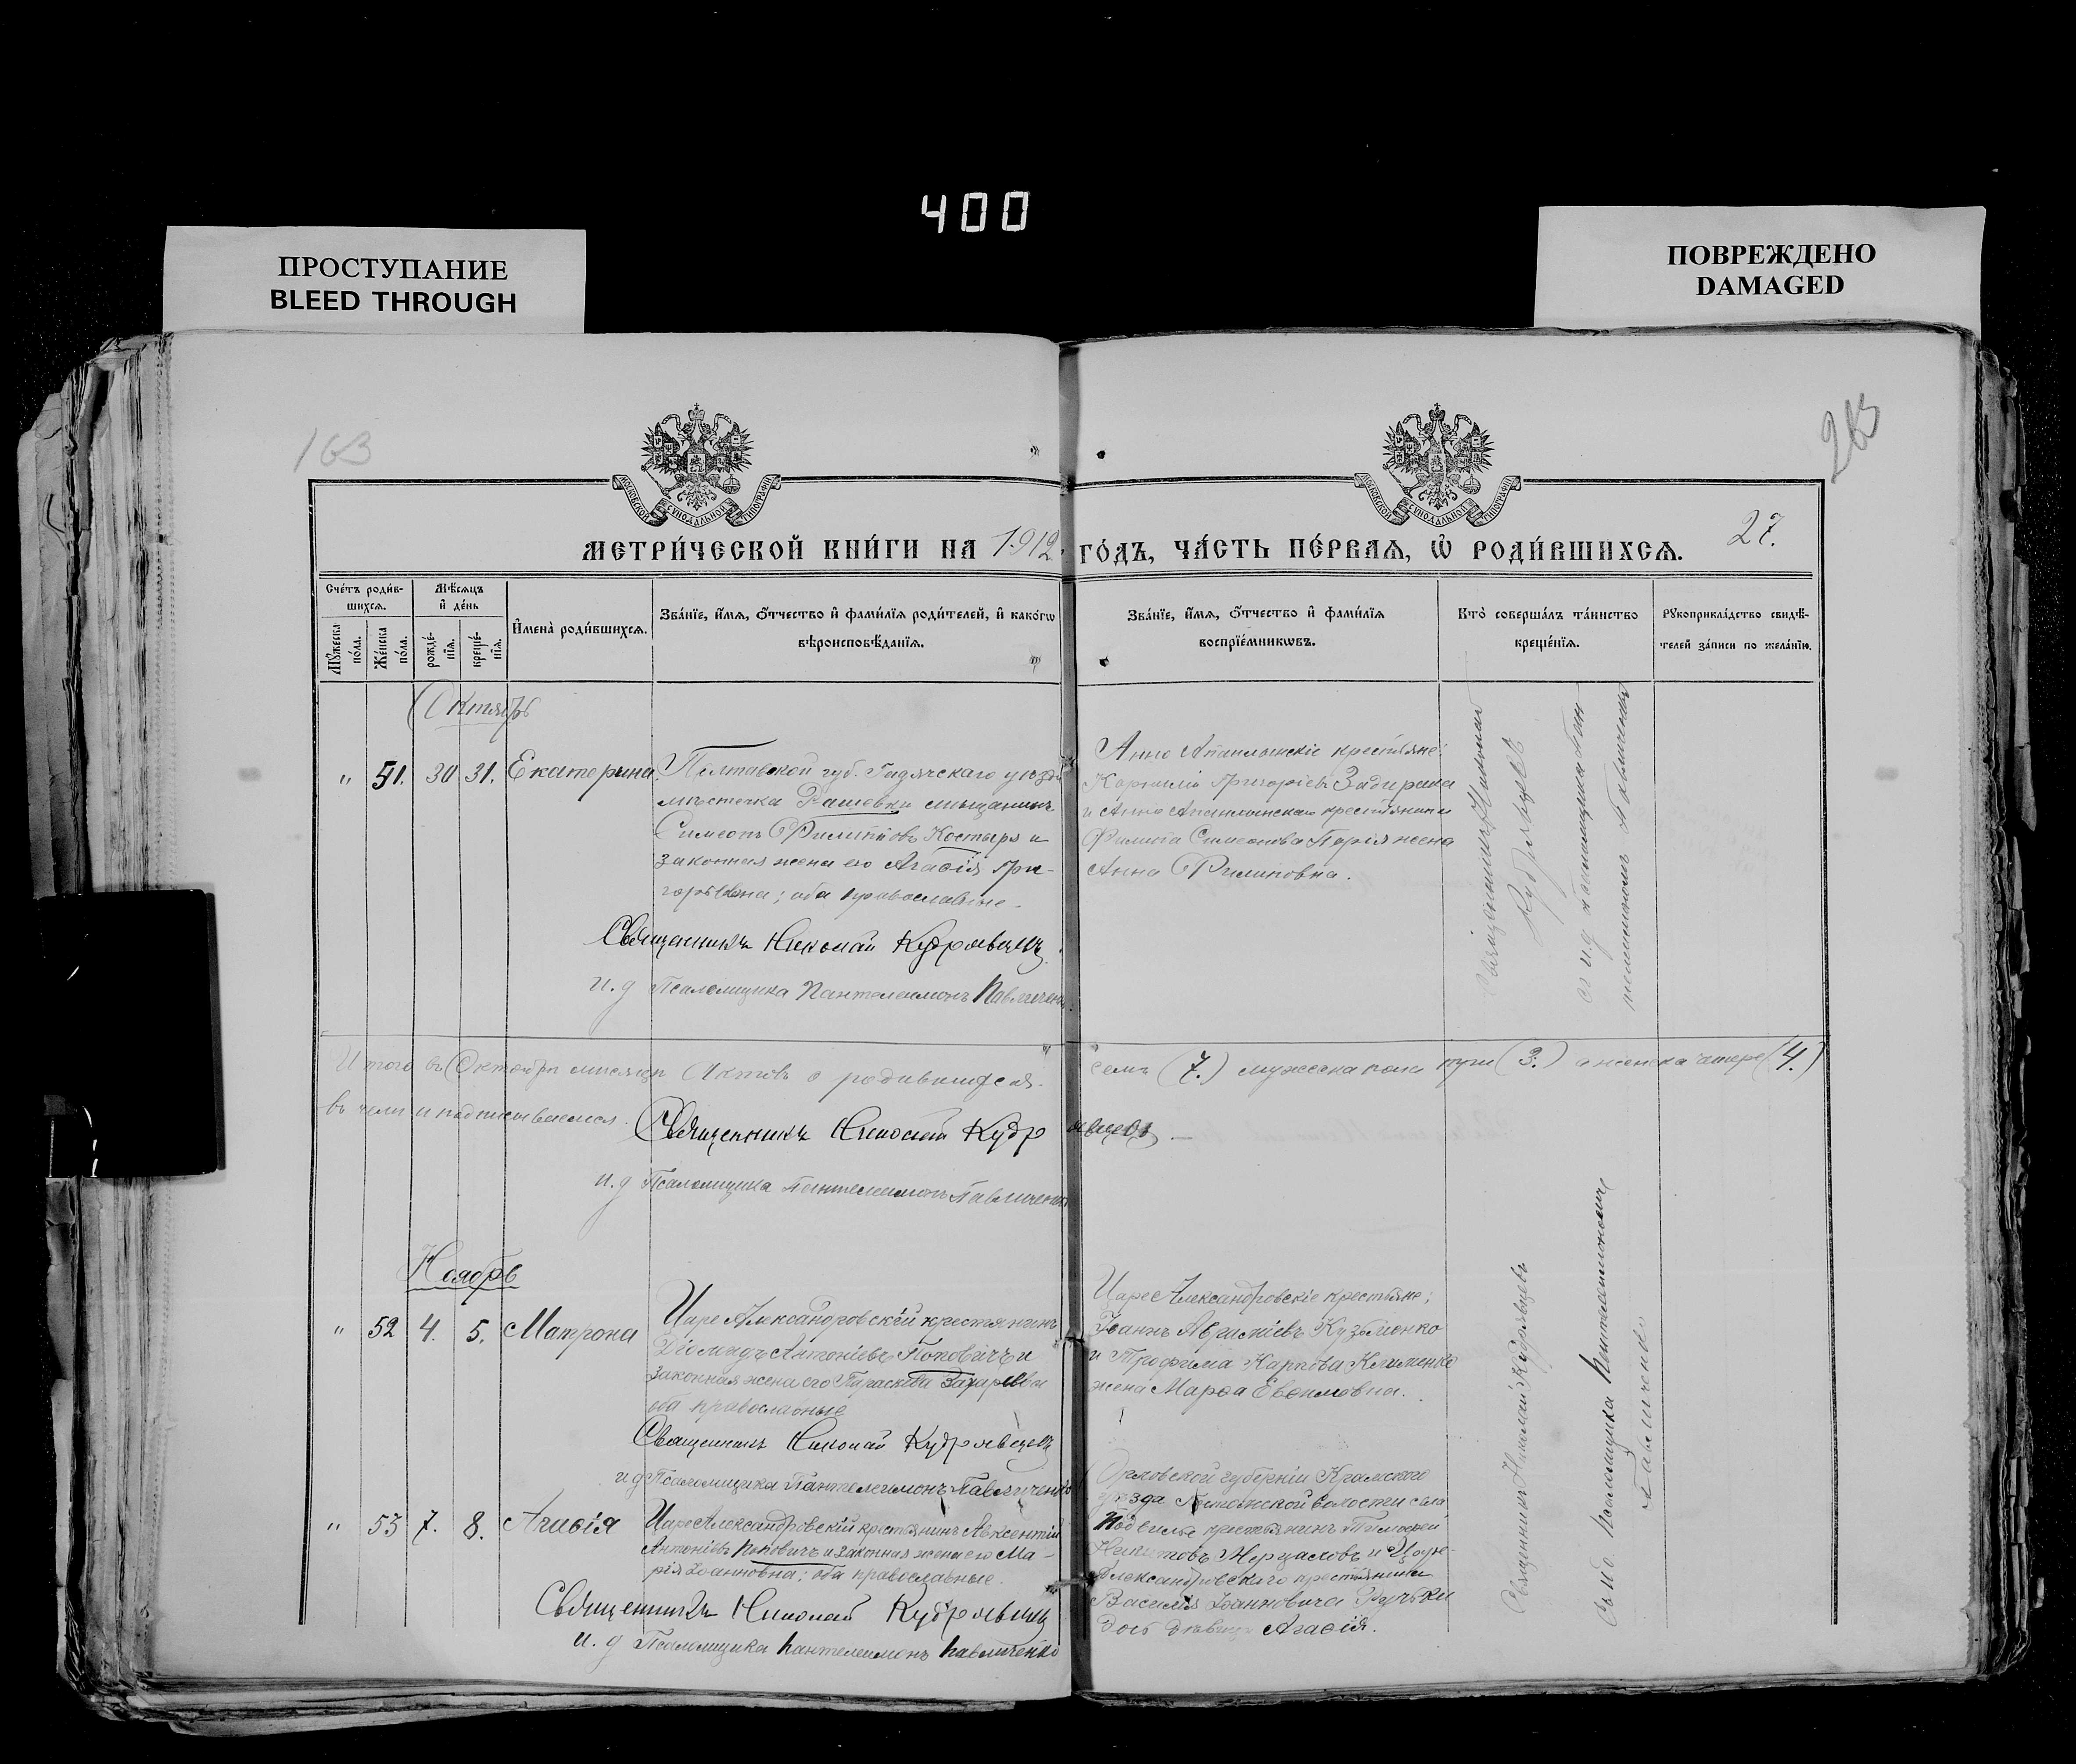 400
ПРОСТУПАНИЕ
BLEED THROUGH
ПОВРЕЖДЕНО
DAMAGED
163
263
МОСКОВСКОЙ СУНОДАЛЬНОЙ ТИПОГРАФІИ
МОСКОВСКОЙ СУНОДАЛЬНОЙ ТИПОГРАФІИ
МЕТРИ́ЧЕСКОЙ КНИ́ГИ НА 1912.
ГО́ДЪ, ЧА́СТЬ ПЕ́РВАЯ, Ѡ҆ РОДИ́ВШИХСѦ.
27.
Сче́тъ роди́в-
шихсѧ.
Мꙋ́жеска по́ла.
Же́нска по́ла.
Мѣ́сѧцъ
и҆ де́нь
рожде́-
нїѧ.
креще́-
нїѧ.
И҆мена̀ роди́вшихсѧ.
Зва́нїе, и҆́мѧ, ѻ҆́тчество и҆ фами́лїѧ роди́телей, и҆ како́гѡ
вѣроисповѣ́данїѧ.
Зва́нїе, и҆́мѧ, ѻ҆́тчество и҆ фами́лїѧ
воспрїе́мникѡвъ.
Кто̀ соверша́лъ та́инство
креще́нїѧ.
Рꙋкоприкла́дство свидѣ́-
телей за́писи по жела́нїю.
Октябрь
" 51. 30 31. Екатерина
Полтавской губ. Гадячскаго уѣзда
мѣстечка Рашевки мѣщанинъ
Симеонъ Филиповъ Костыря и
законная жена его Агафія Гри-
горьевна; оба православные.
Священникъ Николай Кудрявцевъ.
и. д Псаломщика Пантелеимонъ Павличенко
Крестьяне:
Григоріевъ Задирака
и крестьянина
Филипа Симеонова жена
Анна Филиповна.
Священникъ Николай
Кудрявцевъ
съ и. д псаломщика Пан-
телеимономъ Павличенко
Итого въ Октябрѣ мѣсяцѣ Актовъ о родившихся
семь (7.) мужеска пола три (3.) а женска четыре (4.)
въ чемъ и подписываемся.
Священникъ Николай Кудрявцевъ
и. д Псаломщика Пантелеимонъ Павличенко
Ноябрь
" 52 4. 5. Матрона
Царе Александровскій крестьянинъ
Діомидъ Антоніевъ Поповичъ и
законная жена его Параскева Захаріевна
оба православные
Священникъ Николай Кудрявцевъ
и д Псаломщика Пантелеимонъ Павличенко
Царе Александровскіе крестьяне;
Іоаннъ Кузьменко
и Трофима Карпова Клименко
жена Марфа Евфимовна.
Священникъ Николай Кудрявцевъ
Съ и. д. Псаломщика Пантелеимономъ
Павличенко
" 53 7. 8. Агафія
Царе Александровскій крестьянинъ Авксентій
Антоніевъ Поповичъ и законная жена его Ма-
рія Іоанновна; оба православные.
Священникъ Николай Кудрявцевъ
и. д Псаломщика Пантелеимонъ Павличенко
Орловской губерніи Кромского
уѣзда волости села
крестьянинъ Тимофей
Никитовъ Мерцаловъ и Царе-
Александровскаго крестьянина
Василія Іоанновича
дочь дѣвица Агафія.